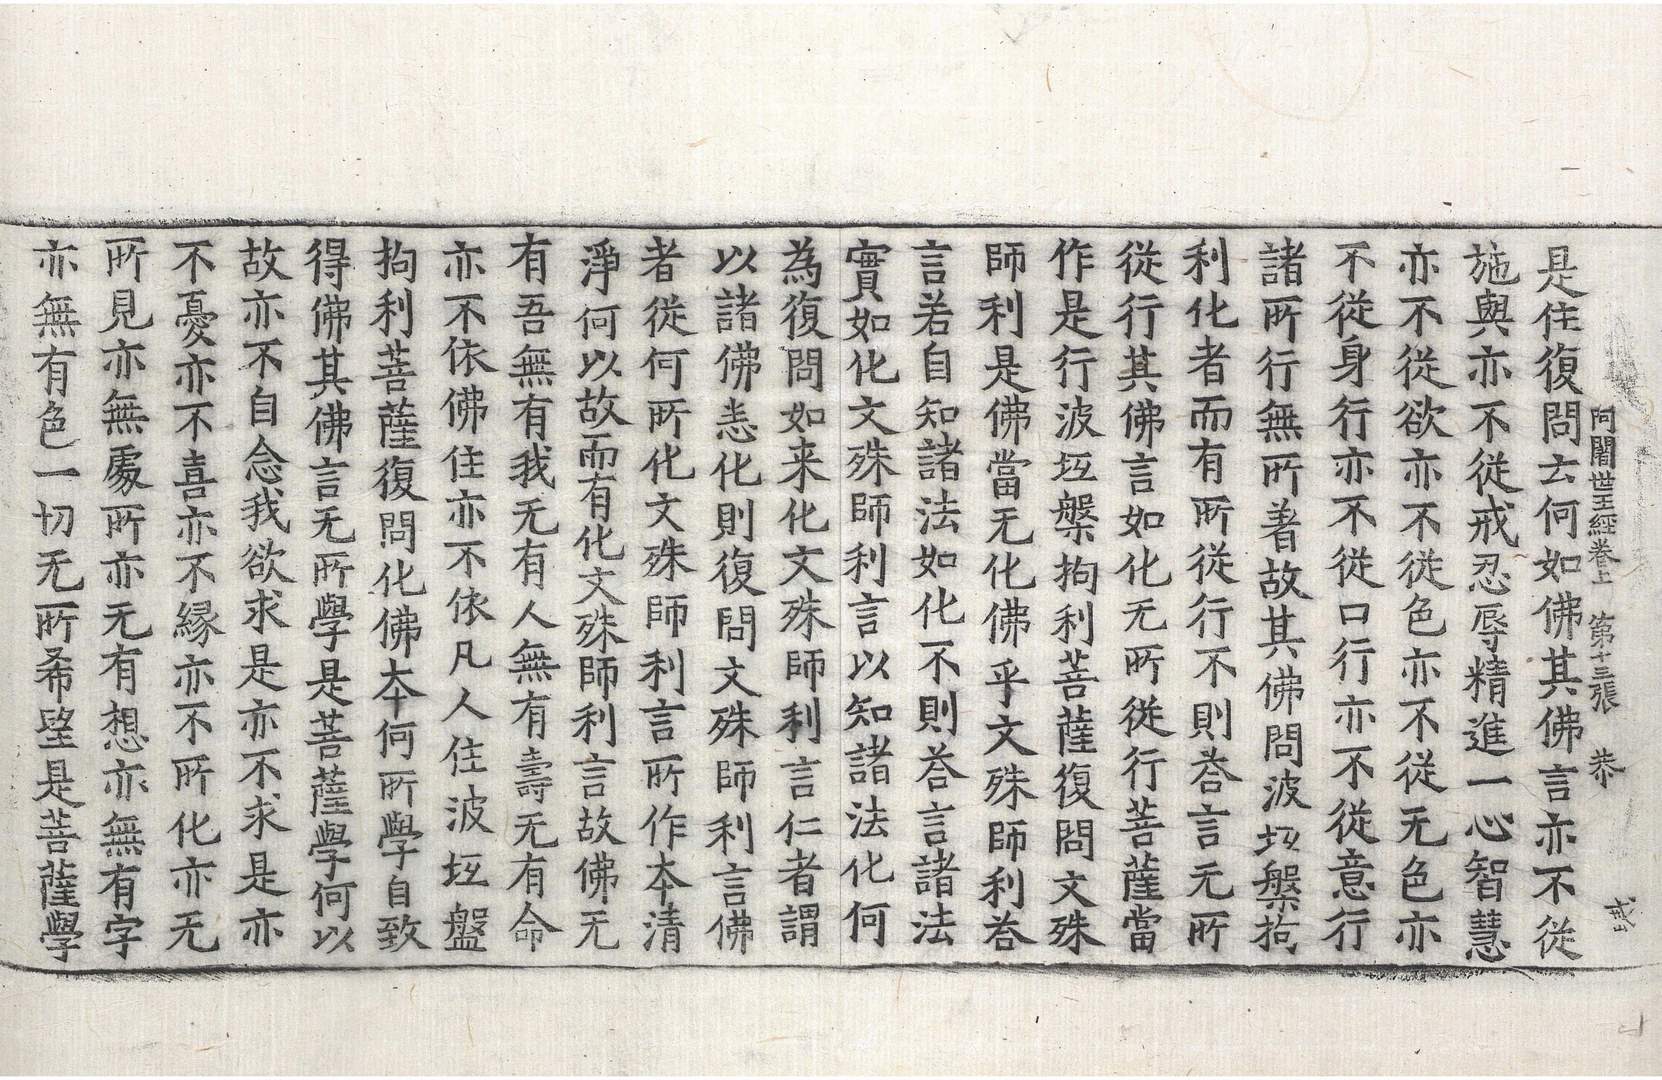 阿闍世王經卷上 第十三張 恭
戒
是住復問云何如佛其佛言亦不從
施與亦不從戒忍辱精進一心智慧
亦不從欲亦不從色亦不從无色亦
不從身行亦不從口行亦不從意行
諸所行無所著故其佛問波坘槃拘
利化者而有所從行不則荅言无所
從行其佛言如化无所從行菩薩當
作是行波坘槃拘利菩薩復問文殊
師利是佛當无化佛乎文殊師利荅
言若自知諸法如化不則荅言諸法
實如化文殊師利言以知諸法化何
為復問如来化文殊師利言仁者謂
以諸佛恙化則復問文殊師利言佛
者從何所化文殊師利言所作夲清
淨何以故而有化文殊師利言故佛无
有吾無有我无有人無有壽无有命
亦不依佛住亦不依凡人住波坘盤
拘利菩薩復問化佛夲何所學自致
得佛其佛言无所學是菩薩學何以
故亦不自念我欲求是亦不求是亦
不憂亦不喜亦不緣亦不所化亦无
所見亦無處所亦无有想亦無有字
亦無有色一切无所希望是菩薩學